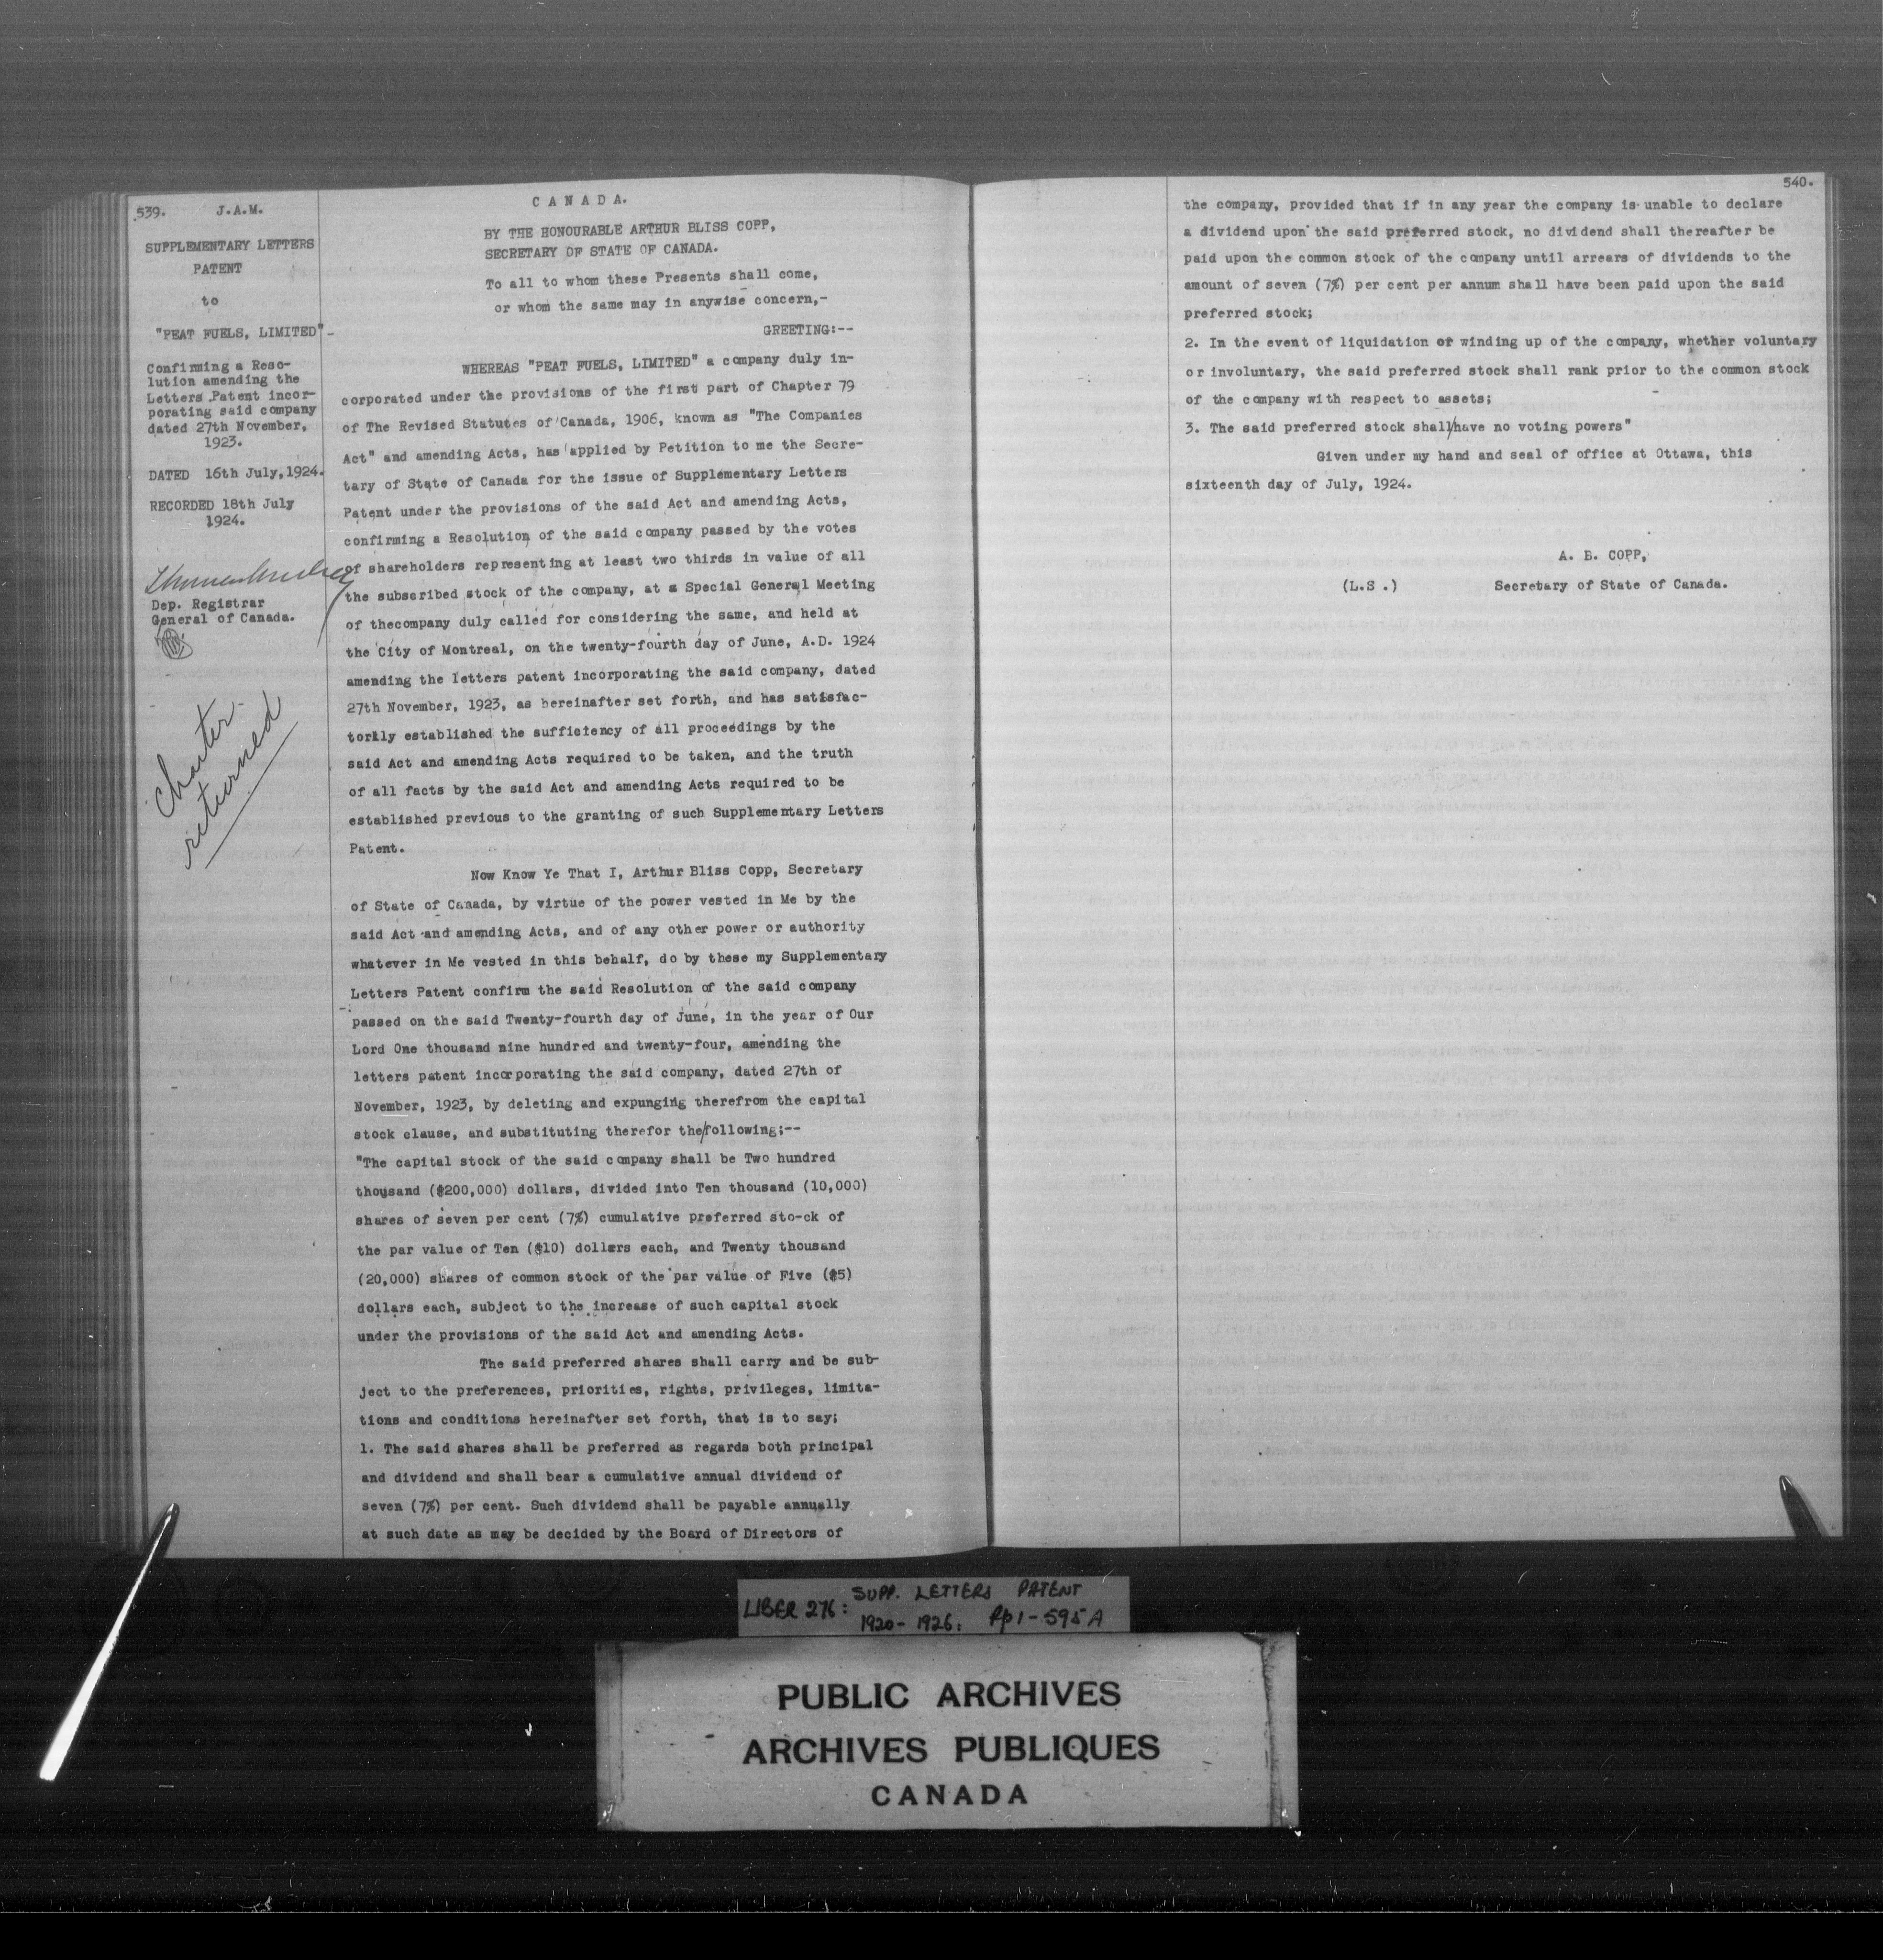 539. J.A.M.
SUPPLEMENTARY LETTERS
PATENT
to
"PEAT FUELS, LIMITED"-
Confirming a Reso-
lution amending the
Letters Patent incor-
porating said company
dated 27th November,
1923.
DATED 16th July, 1924.
RECORDED 18th July
1924.
Dep. Registrar
General of Canada.
Charter
returned
C A N A D A.
BY THE HONOURABLE ARTHUR BLISS COPP,
SECRETARY OF STATE OF CANADA.
To all to whom these Presents shall come,
or whom the same may in anywise concern,-
GREETING:--
WHEREAS "PEAT FUELS, LIMITED" a company duly in-
corporated under the provisions of the first part of Chapter 79
of The Revised Statutes of Canada, 1906, known as "The Companies
Act" and amending Acts, has applied by Petition to me the Secre-
tary of State of Canada for the issue of Supplementary Letters
Patent under the provisions of the said Act and amending Acts,
confirming a Resolution of the said company passed by the votes
of shareholders representing at least two thirds in value of all
the subscribed stock of the company, at a Special General Meeting
of thecompany duly called for considering the same, and held at
the City of Montreal, on the twenty-fourth day of June, A.D. 1924
amending the letters patent incorporating the said company, dated
27th November, 1923, as hereinafter set forth, and has satisfac-
torily established the sufficiency of all proceedings by the
said Act and amending Acts required to be taken, and the truth
of all facts by the said Act and amending Acts required to be
established previous to the granting of such Supplementary Letters
Patent.
Now Know Ye That I, Arthur Bliss Copp, Secretary
of State of Canada, by virtue of the power vested in Me by the
said Act and amending Acts, and of any other power or authority
whatever in Me vested in this behalf, do by these my Supplementary
Letters Patent confirm the said Resolution of the said company
passed on the said Twenty-fourth day of June, in the year of Our
Lord One thousand nine hundred and twenty-four, amending the
letters patent incorporating the said company, dated 27th of
November, 1923, by deleting and expunging therefrom the capital
stock clause, and substituting therefor the/following;--
"The capital stock of the said company shall be Two hundred
thousand ($200,000) dollars, divided into Ten thousand (10,000)
shares of seven per cent (7%) cumulative preferred sto-ck of
the par value of Ten ($10) dollars each, and Twenty thousand
(20,000) shares of common stock of the par value of Five ($5)
dollars each, subject to the increase of such capital stock
under the provisions of the said Act and amending Acts.
The said preferred shares shall carry and be sub-
ject to the preferences, priorities, rights, privileges, limita-
tions and conditions hereinafter set forth, that is to say;
1. The said shares shall be preferred as regards both principal
and dividend and shall bear a cumulative annual dividend of
seven (7%) per cent. Such dividend shall be payable annually
at such date as may be decided by the Board of Directors of
540.
the company, provided that if in any year the company is unable to declare
a dividend upon the said preferred stock, no dividend shall thereafter be
paid upon the common stock of the company until arrears of dividends to the
amount of seven (7%) per cent per annum shall have been paid upon the said
preferred stock;
2. In the event of liquidation or winding up of the company, whether voluntary
or involuntary, the said preferred stock shall rank prior to the common stock
of the company with respect to assets;
3. The said preferred stock shall/have no voting powers"
Given under my hand and seal of office at Ottawa, this
sixteenth day of July, 1924.
A. B. COPP,
(L.S .) Secretary of State of Canada.
LIBER 276: SUPP. LETTERS PATENT
1920-1926: Pp 1-595A
PUBLIC ARCHIVES
ARCHIVES PUBLIQUES
CANADA